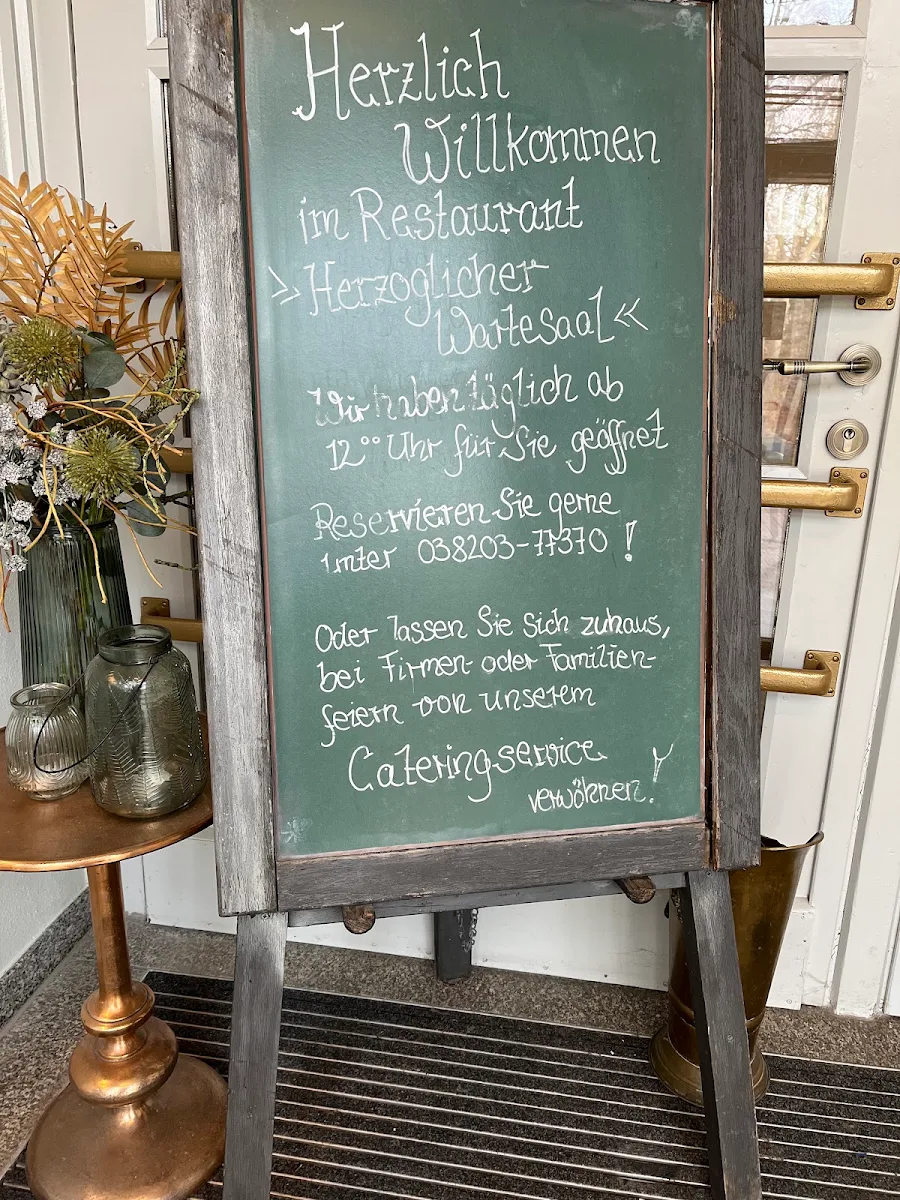 Herzlich
Willkommen
im Restaurant
>> Herzoglicher
Wartesaal <<
Wir haben täglich ab
12°° Uhr für Sie geöffnet
Reservieren Sie gerne
unter 038203-77370 !
Oder lassen Sie sich zuhaus,
bei Firmen- oder Familien-
feiern von unserem
Cateringservice
verwöhnen!